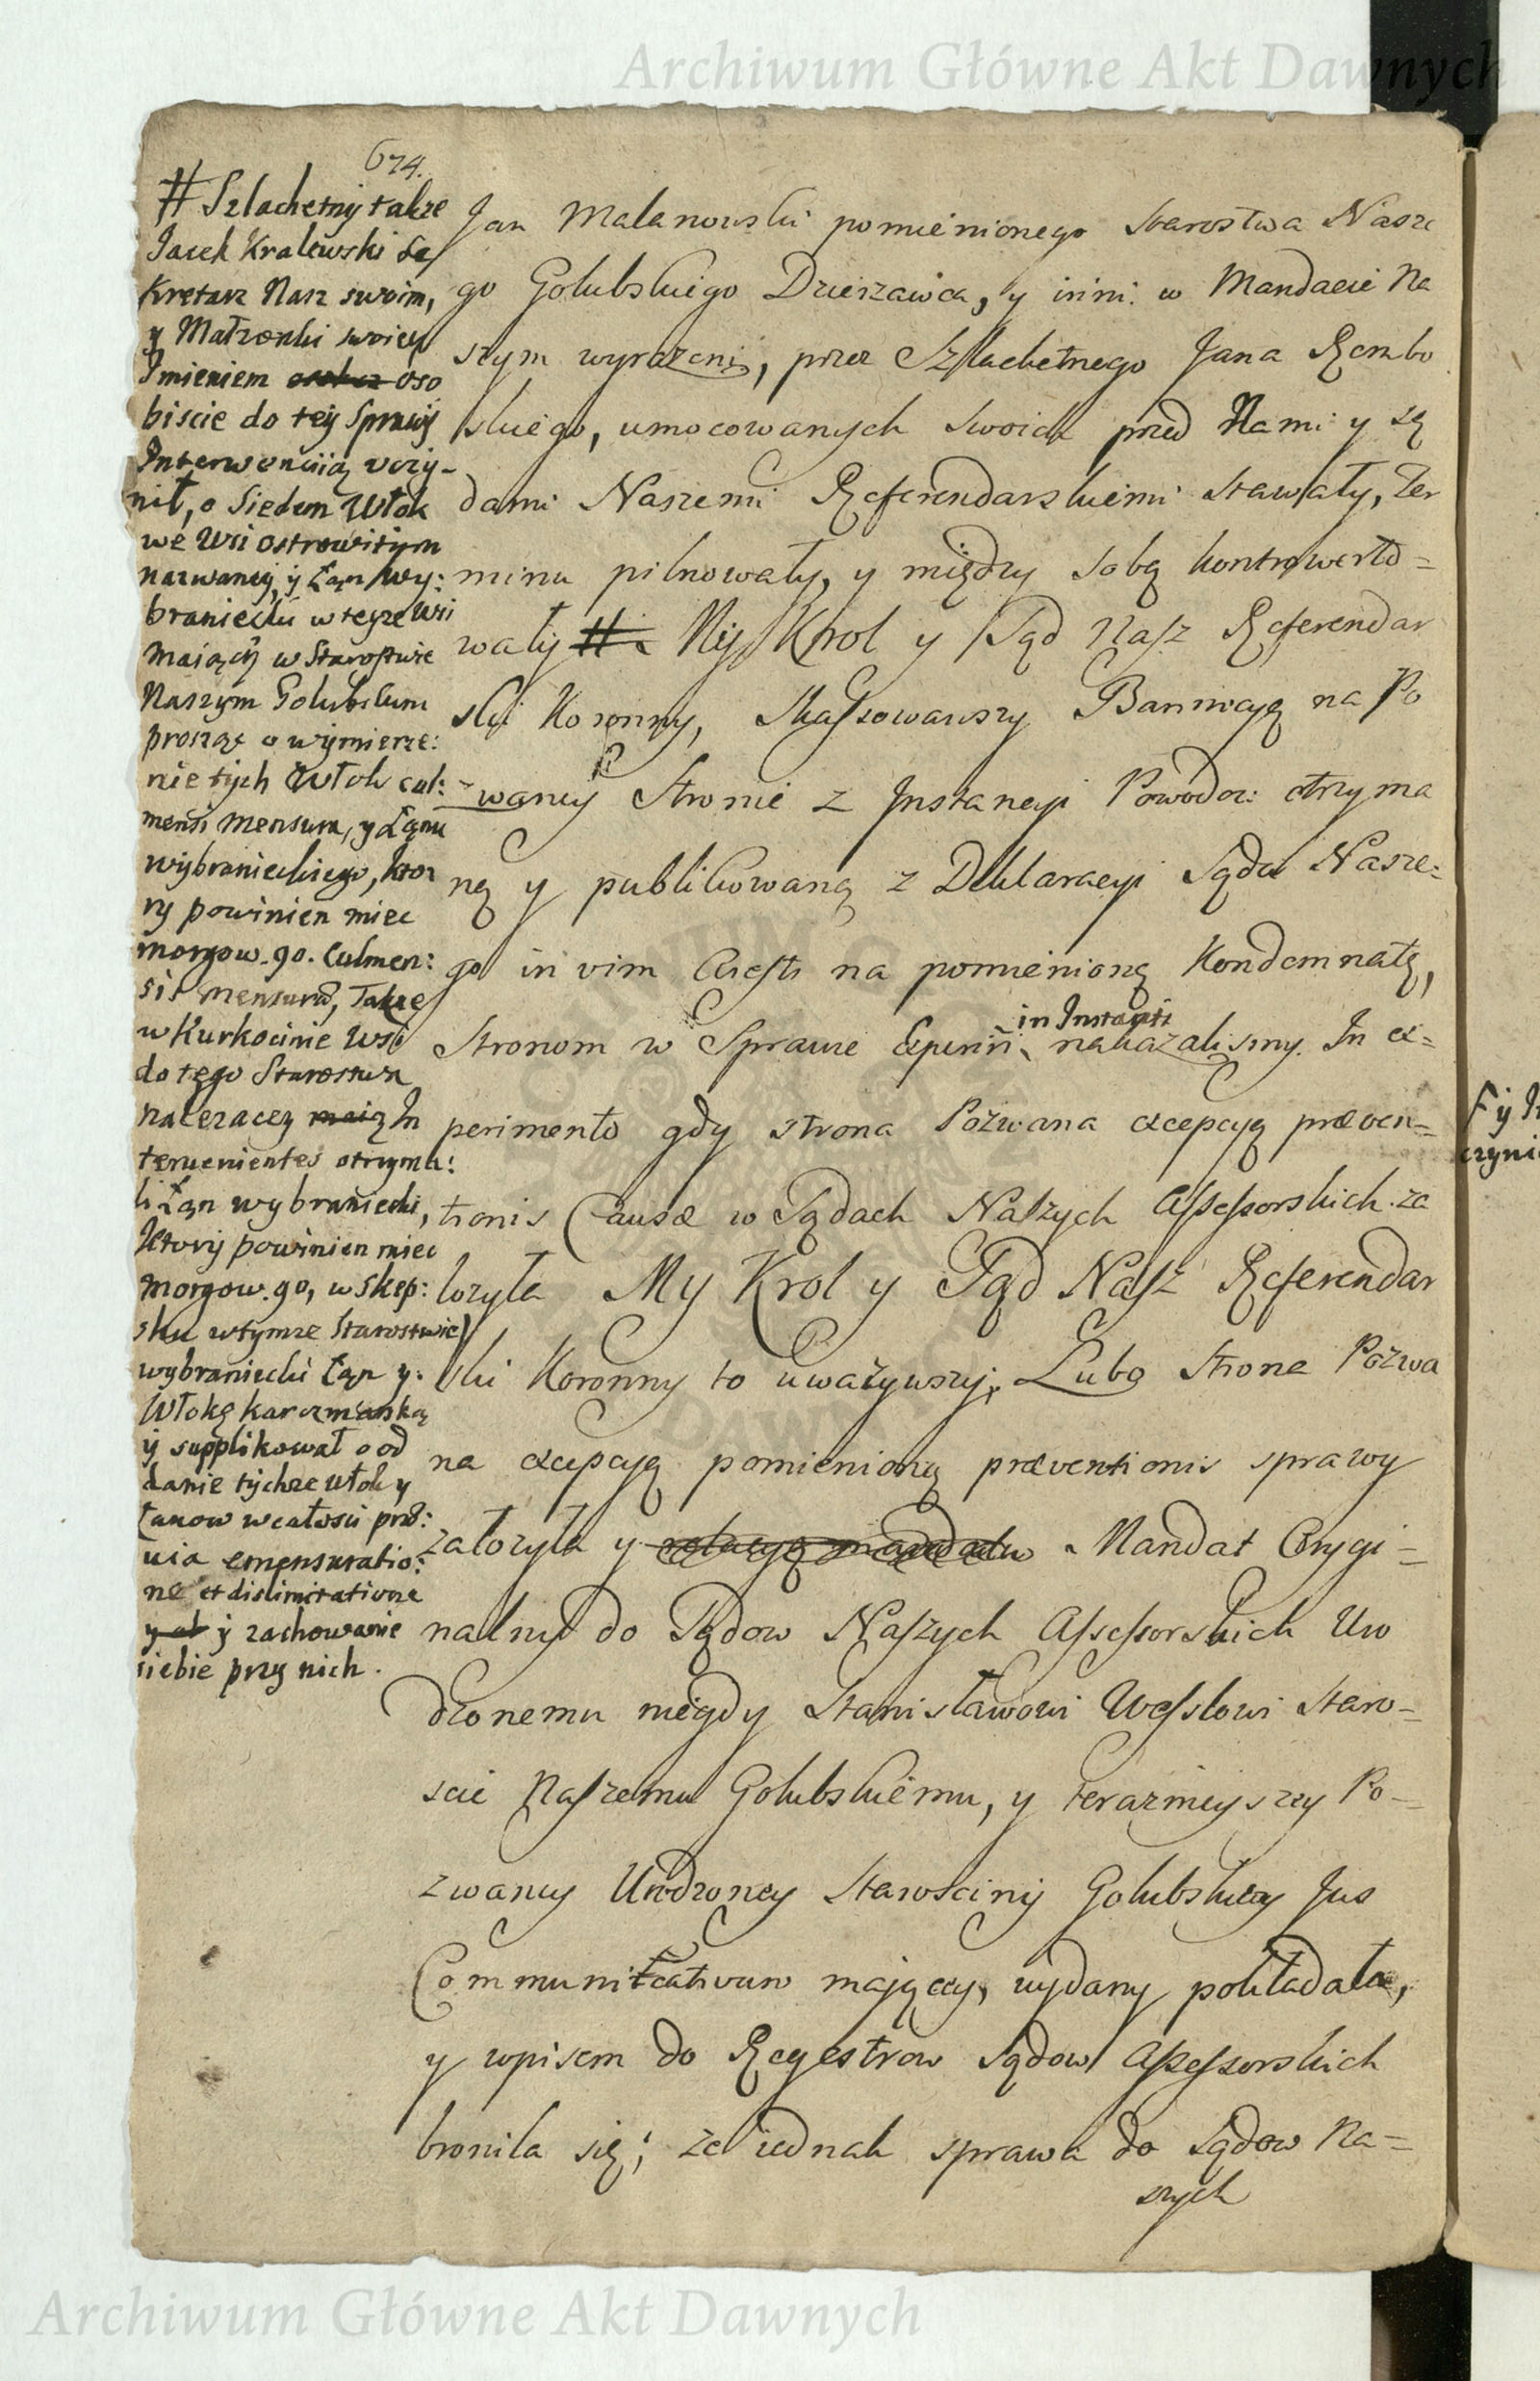 Archiwum Główne Akt Dawnych
674.
# Szlachetny także
Jacek Kralewski Se
kretarz Nasz swoim,
y Małzonki swoiey
Imieniem oso
biscie do tey Sprawy
Interwencyią uczy-
nił, o Siedem Włok
we Wsi ostrowitym
nazwaney, y Łan wy:
braniecki w teyze wsi
maiący w Starostwie
Naszym Golubskim
prosząc o wymierze:
nie tych Włok cul:
mensi mensura, y Łanu
wybranieckiego, kto
ry powinien miec
morgow. 90. Culmen:
sis mensura, Także
w Kurkocinie Wsi
do tego Starostwa
nalezacey In
tervenientes otrzyma:
li Łan wybraniecki,
ktory powinien miec
morgow. 90, w Skep:
sku w tymze Starostwie
wybraniecki Łan y
Włokę karczmarską
y supplikował o od
danie tychze włok y
Łanow w całosci prae:
via emensuratio:
ne et dislimitatione
y zachowanie
siebie przy nich.
Jan Malanowski pomienionego Starostwa Nasze
go Golubskiego Dzierzawca, y inni w Mandacie Na
szym wyrazeni, przez Szlachetnego Jana Rembo
skiego, umocowanych swoich przed Nami y są
dami Naszemi Referendarskiemi stawały, Ter
minu pilnowały, y między sobą kontrowerto=
wały # My Krol y Sąd Nasz Referendar
ski Koronny, Skassowawszy Bannicyą na Po
zwaney Stronie z Instancyi Powodow otrzyma
ną y publikowaną z Deklaracyi Sądu Nasze:
go in vim Aresti na pomienioną Kondemnatę,
Stronom w Sprawie Experiri in Instanti nakazalismy. In ex=
perimento gdy strona Pozwana excepcyą praeven=
tionis Causae w Sądach Naszych Assessorskich za
lozyła My Krol y Sąd Nasz Referendar
ski Koronny to uwazywszy, Lubo Strona Pozwa
na excepcyą pomienioną praeventionis sprawy
załozyła y relacyą mandatu Mandat Orygi=
nalny do Sądow Naszych Assessorskich Uro
dzonemu niegdy Stanisławowi Wesslowi Staro=
scie Naszemu Golubskiemu, y terazniejszey Po-
zwaney Urodzoney Starosciny Golubskiey Jus
Communicativum maiącey, wydany pokładała,
y wpisem do Regestrow Sądow Assessorskich
bronila się; ze iednak sprawa do Sądow Na=
szych
Archiwum Główne Akt Dawnych